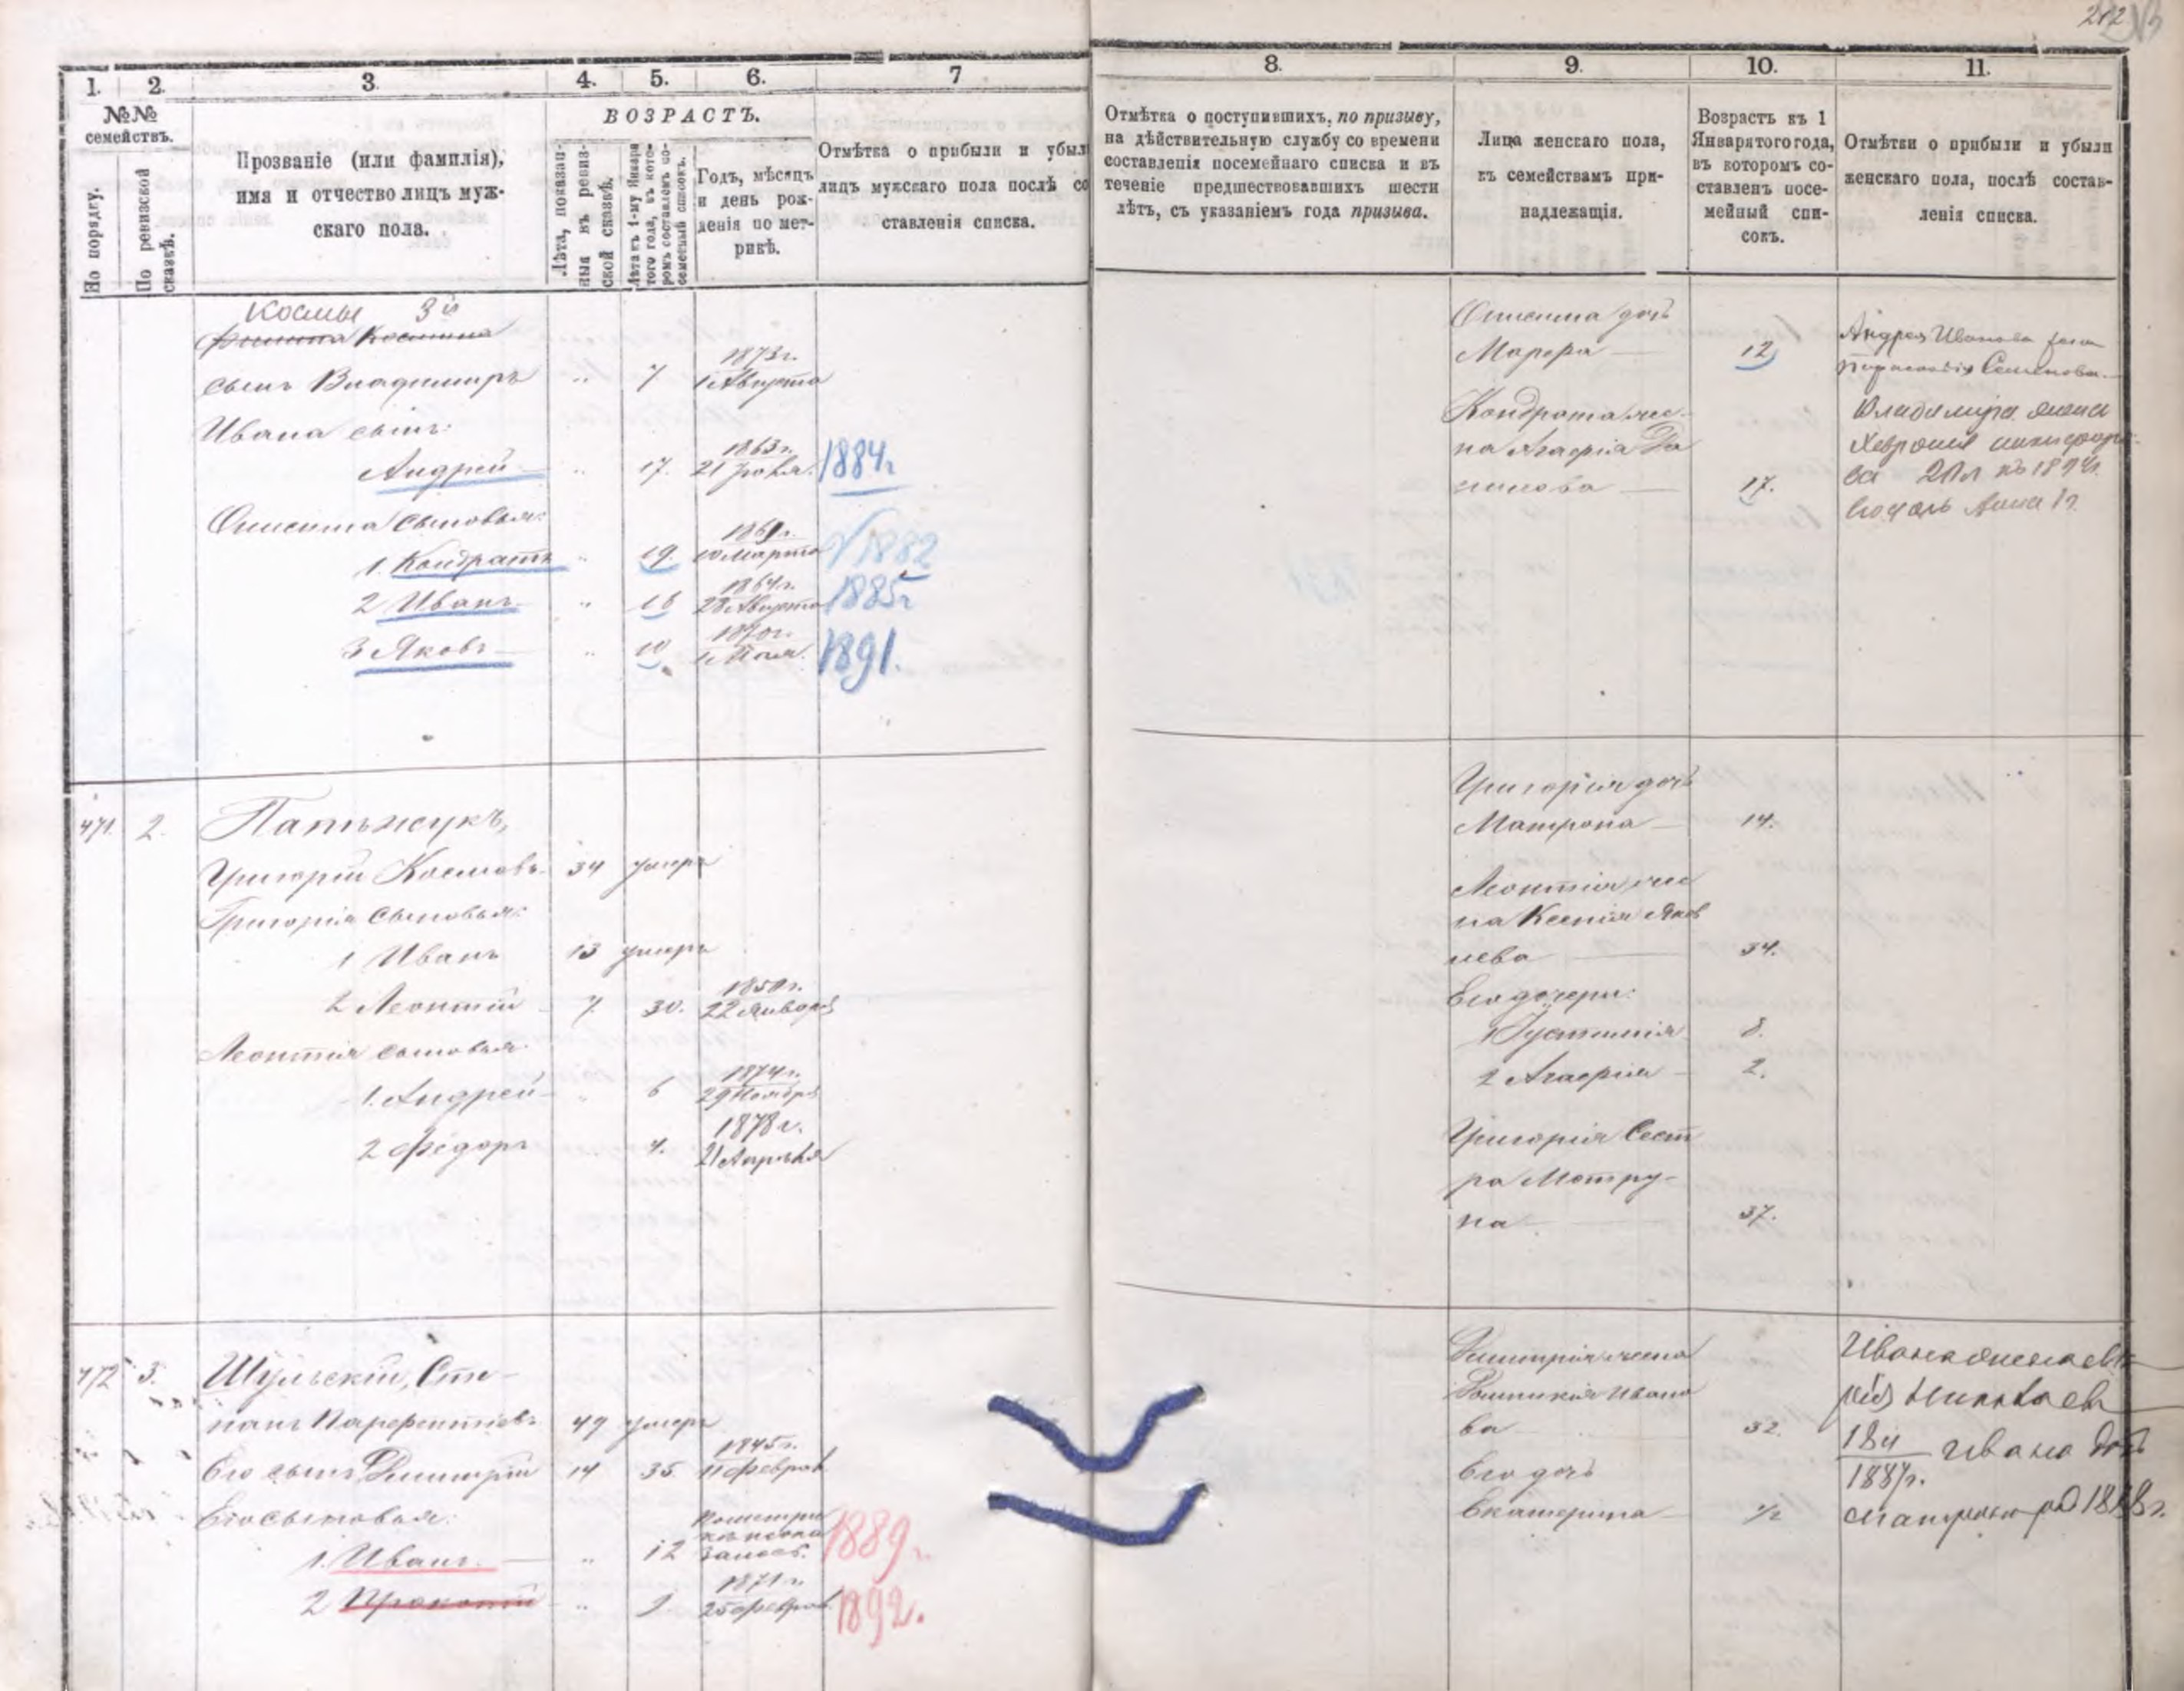 212
1.
2.
3.
4.
5.
6.
7
№№ семействъ.
По порядку.
По ревизской сказкѣ.
Прозваніе (или фамилія),
имя и отчество лицъ муж-
скаго пола.
ВОЗРАСТЪ.
Лѣта, показан-
ныя въ ревиз-
ской сказкѣ.
Лѣта къ 1-му Января
того года, въ кото-
ромъ составленъ по-
семейный списокъ.
Годъ, мѣсяцъ
и день рож-
денія по мет-
рикѣ.
Отмѣтка о прибыли и убыл
лицъ мужскаго пола послѣ со
ставленія списка.
Космы 3й
сынъ Владимиръ " 7 1873г. 1 Августа
Ивана сынъ:
Андрей " 17. 1863г. 21 1884г
Онисима сыновья:
1. Кондратъ " 19. 1861г. 10 Марта 1882
2 Иванъ " 16 1864г. 28 Августа 1885г
3 Яковъ " 10 1870г. 1 1891.
471. 2.
Григорій Космовъ 34 умеръ
Григорія сыновья:
1 Иванъ 13 умеръ
2 Леонтій 7 30. 1850г. 22 Января
Леонтія сыновья:
1. Андрей " 6 1874г. 29 Ноября
2 Федоръ 4. 1878г. 21 Апрѣля
472 3. Шульскій, Сте-
панъ Парфентіевъ 49 умеръ
Его сынъ Димитрій 14 35 1845г. 11 Феврал
Его сыновья:
1. Иванъ " 12 1889г.
2 Прокопій " 9 1871г. 25 Феврал 1892.
8.
9.
10.
11.
Отмѣтка о поступившихъ, по призыву,
на дѣйствительную службу со времени
составленія посемейнаго списка и въ
теченіе предшествовавшихъ шести
лѣтъ, съ указаніемъ года призыва.
Лица женскаго пола,
къ семействамъ при-
надлежащія.
Возрастъ къ 1
Января того года,
въ которомъ со-
ставленъ посе-
мейный спи-
сокъ.
Отмѣтки о прибыли и убыли
женскаго пола, послѣ состав-
ленія списка.
Онисима дочь
Марфа 12
Кондрата же-
на Агафія Да
нилова 17.
Андрея Иванова жена
Параскевія Семенова
Владимира жена
Хеврония никифоро-
ва 20л къ 1894г.
дочь Анна 1г.
Григорія дочь
Матрона 14.
Леонтія же
на Ксенія Яков
лева 34.
Его дочери:
1 Густинія 8.
2 Агафія 2.
Григорія Сест
ра Мотру-
на 37.
Димитрія жена
Домникія Ивано
ва 32.
Его дочь
Екатерина 1/2
Николаев
1887г. Ивана дочь
Матрона род 1888г.